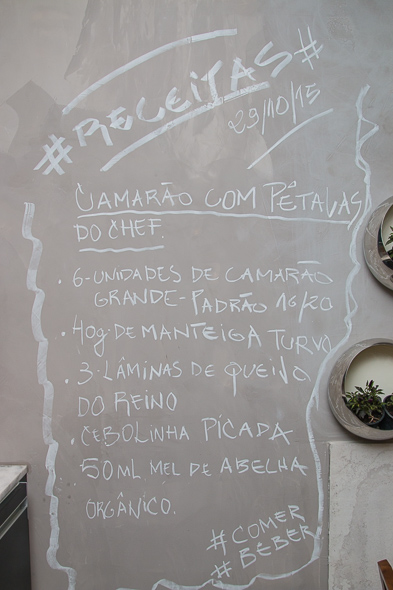 #RECEITAS#
29/10/15
CAMARÃO COM PÉTALAS
DO CHEF.
· 6-UNIDADES DE CAMARÃO
GRANDE-PADRÃO 16/20
· 40g. DE MANTEIGA TURVA
· 3. LÂMINAS DE QUEIJO
DO REINO
· CEBOLINHA PICADA
· 50ML. MEL DE ABELHA
ORGÂNICO.
#COMER
#BEBER